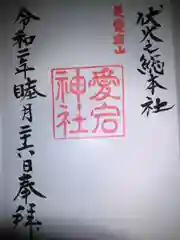 伏火之総本社
愛宕山
愛宕神社
令和二年睦月二十六日奉拝